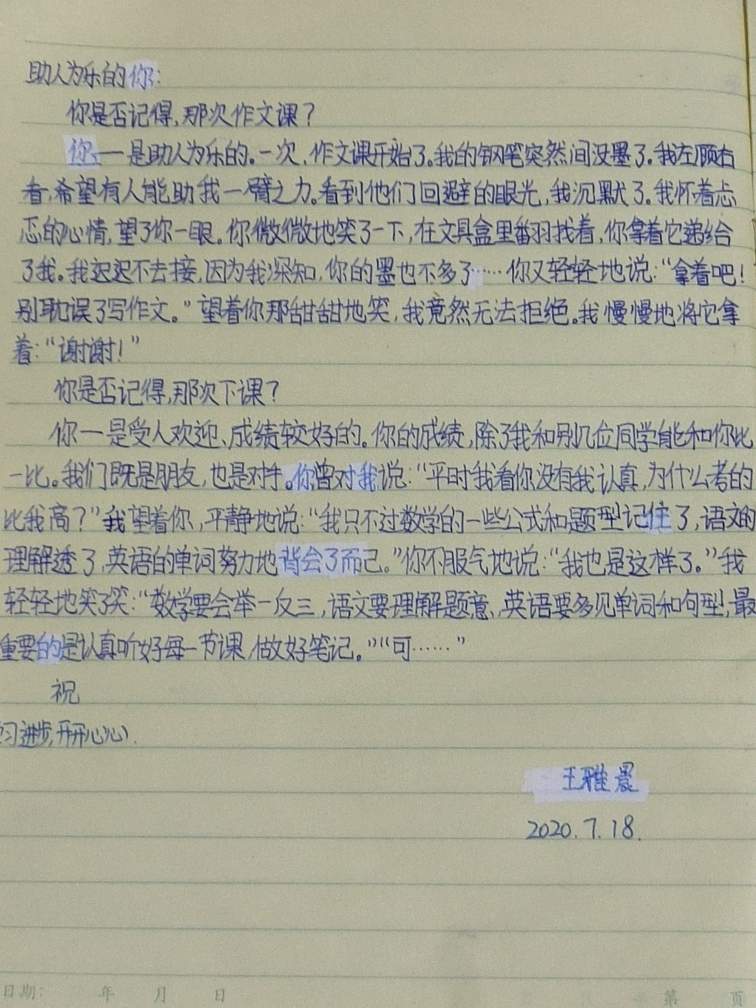 助人为乐的你:
你是否记得,那次作文课?
你,一是助人为乐的。一次,作文课开始了。我的钢笔突然间没墨了。我左顾右
看,希望有人能助我一臂之力。看到他们回避的眼光,我沉默了。我怀着忐
忑的心情,望了你一眼。你微微地笑了一下,在文具盒里翻找着,你拿着它递给
了我。我迟迟不去接,因为我深知,你的墨也不多了……你又轻轻地说:“拿着吧!
别耽误了写作文。”望着你那甜甜地笑,我竟然无法拒绝。我慢慢地将它拿
着:“谢谢!”
你是否记得,那次下课?
你一是受人欢迎、成绩较好的。你的成绩,除了我和别几位同学能和你比
一比。我们既是朋友,也是对手。你曾对我说:“平时我看你没有我认真,为什么考的
比我高?”我望着你,平静地说:“我只不过数学的一些公式和题型记住了,语文的
理解透了,英语的单词努力地背会了而已。”你不服气地说:“我也是这样了。”我
轻轻地笑了笑:“数学要会举一反三,语文要理解题意,英语要多见单词和句型,最
重要的是认真听好每一节课,做好笔记。”“可……”
祝
习进步,开开心心.
王雅晨
2020.7.18.
日期: 年 月 日 第 页